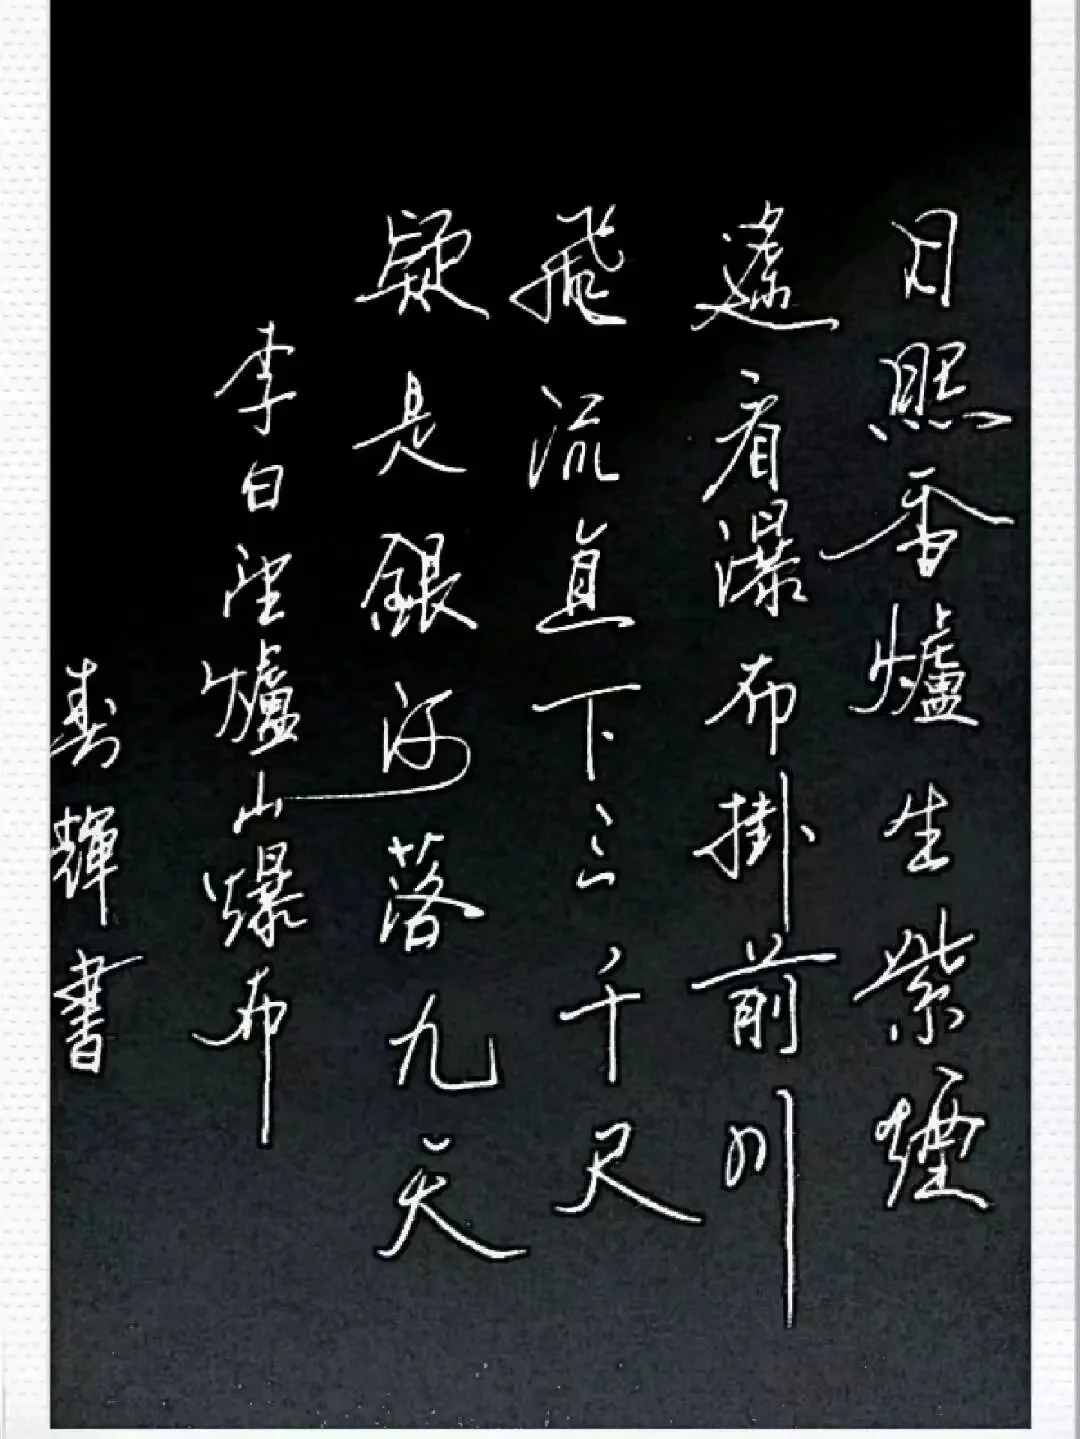 日照香爐生紫煙
遙看瀑布掛前川
飛流直下三千尺
疑是銀河落九天
李白望爐山爆布
壽輝書